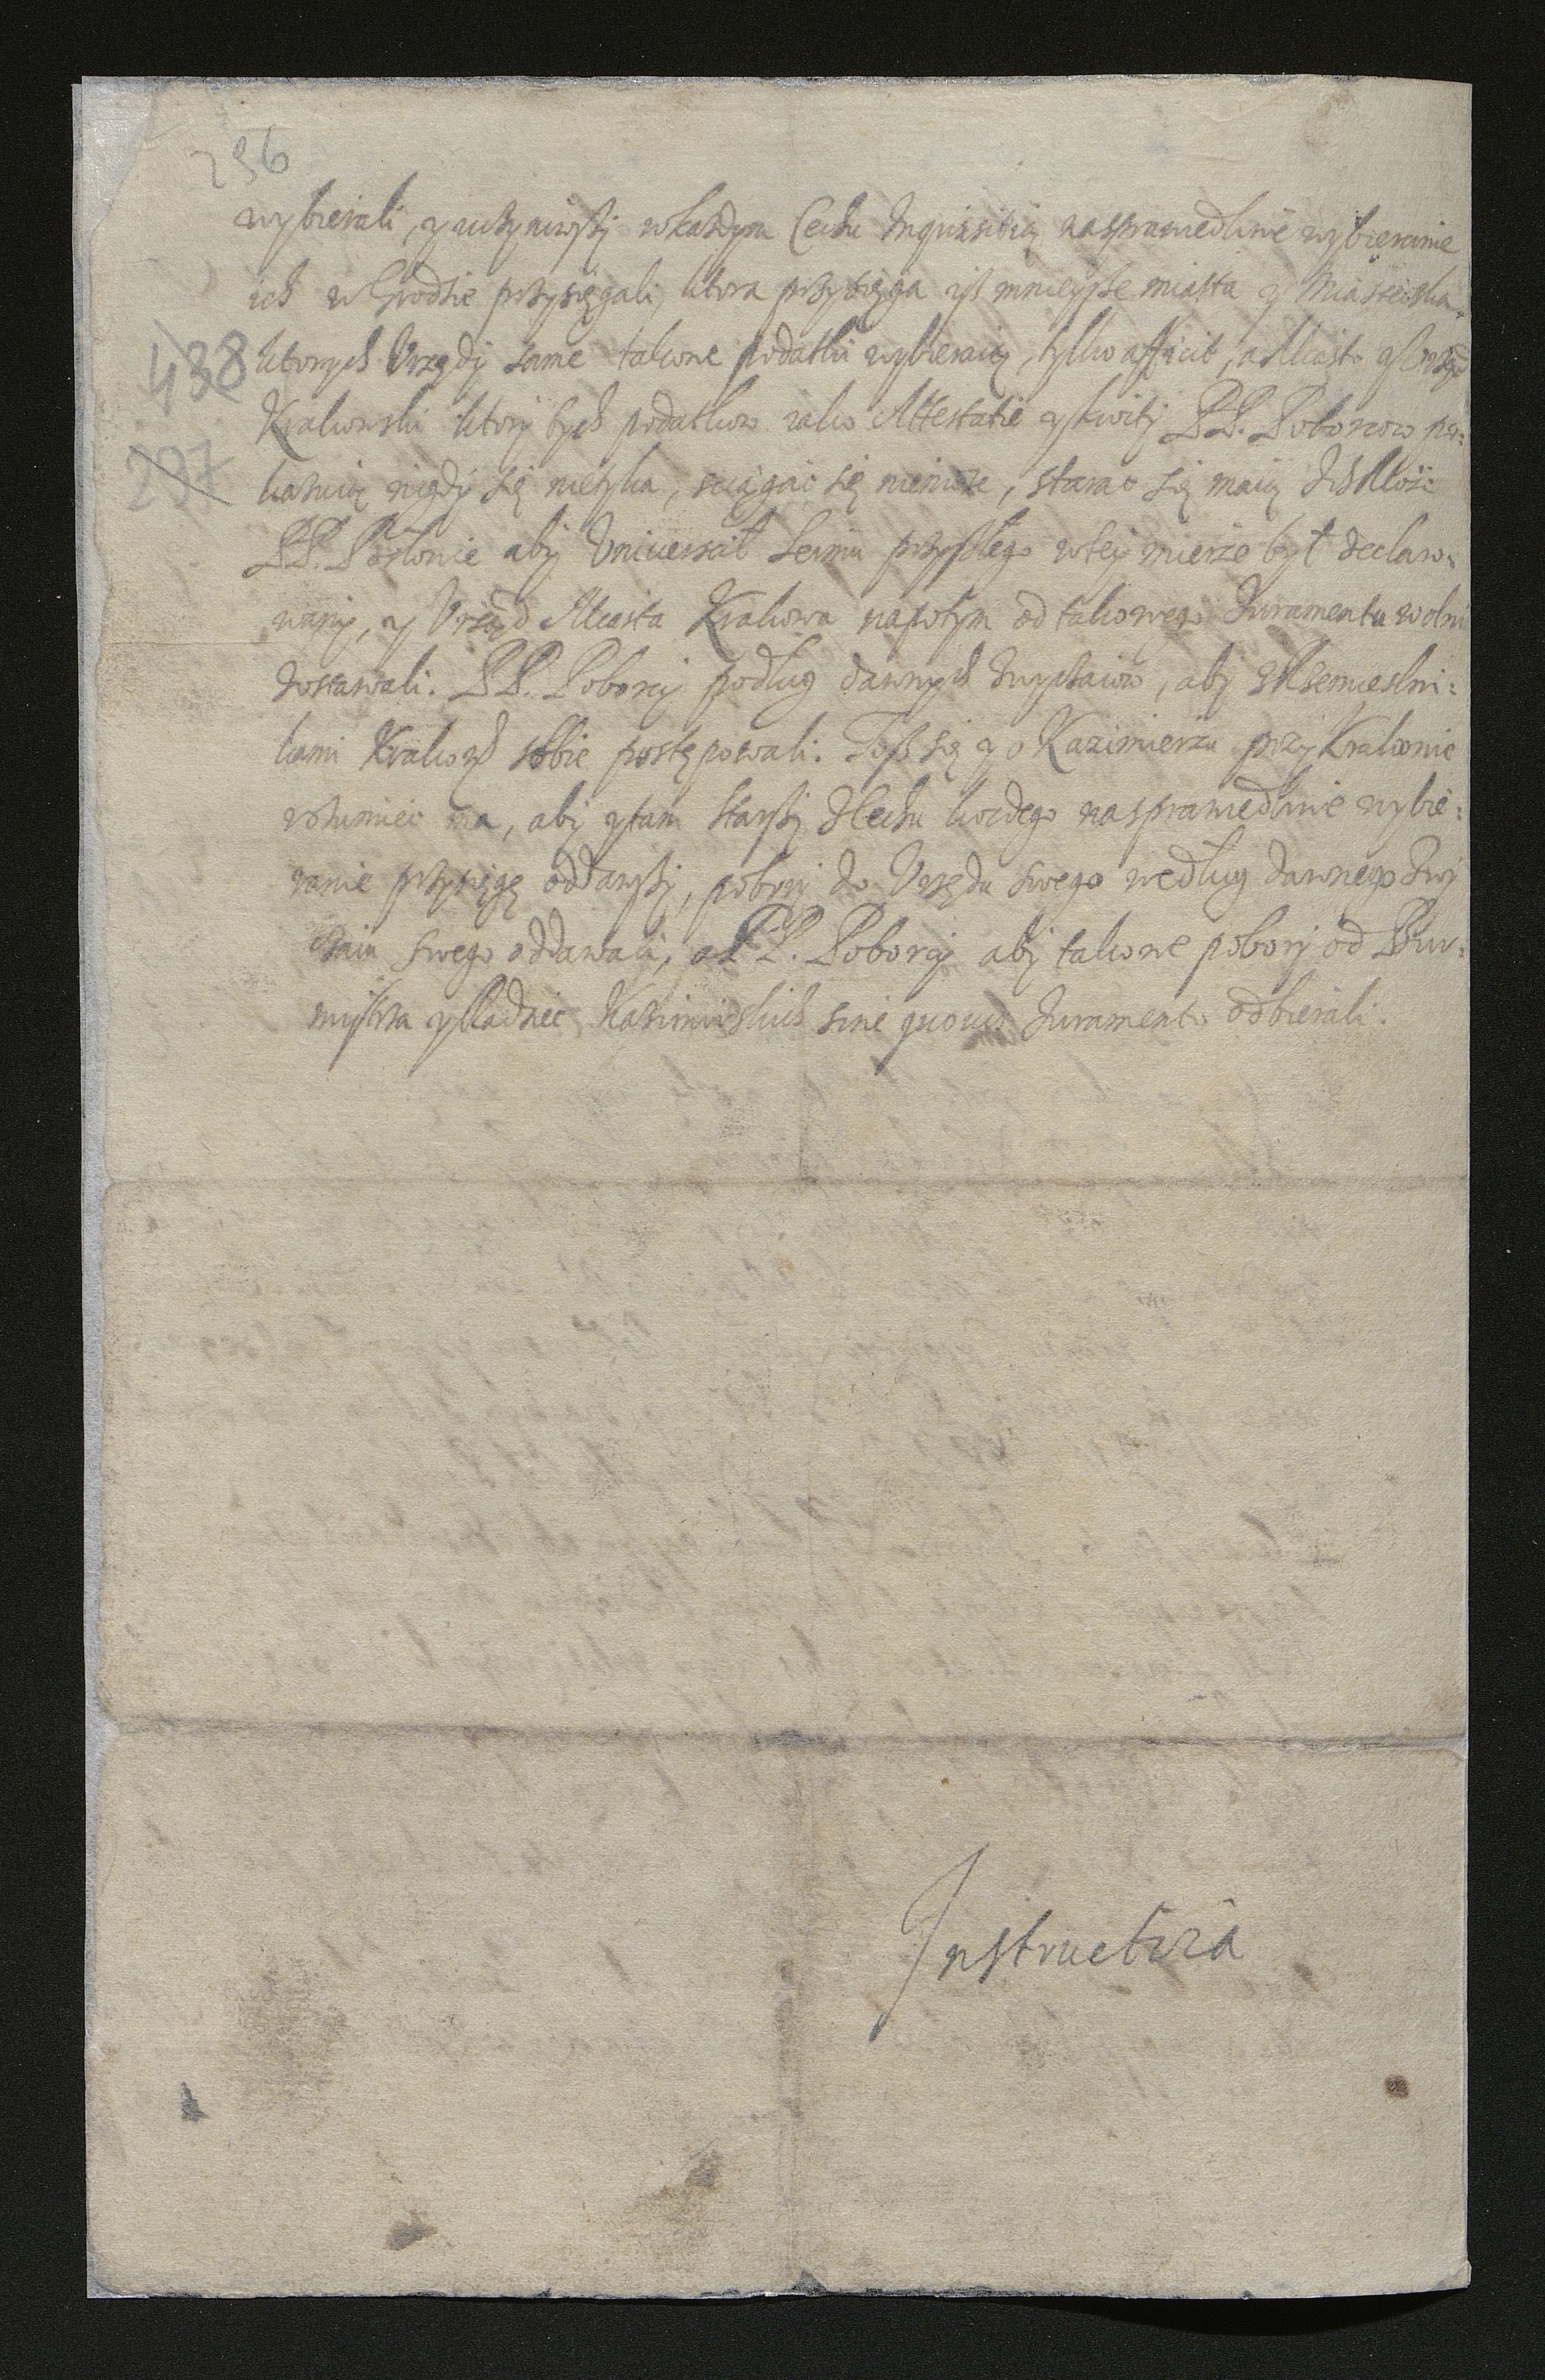 296
wybierali, y uczyniwszy w kazdym Cechu Inquisitią na sprawiedliwe wybieranie
ich w Grodzie przysięgali, ktora przysięga isz mnieysze miasta y Miasteczka,
438 ktorych Vrzędy same takowe podatki wybieraią, tylko afficit, a Miasto y Vrząd
Krakowski ktory tych podatkow iako Attestatie y kwity PP. Poborcow po:
297 kazuią nigdy się nietyka, sciągac się niemoze, starac się maią Ich Mosc
PP. Posłowie aby Vniuersał Seimu przyszłego w tey mierze był declaro:
wany, y Vrząd Miasta Krakowa napotym od takowego Iuramentu wolni
zostawali. PP. Poborcy podług dawnych zwyczaiow, aby z Rzemieslni:
kami Krakowsk. sobie postępowali. Tosz się y o Kazimierzu przy Krakowie
rozumiec ma, aby y tam starszy z Cechu kozdego na sprawiedliwe wybie:
ranie przysięgę oddawszy, pobory do Vrzędu swego według dawnego zwy
czaiu swego oddawali, a PP. Poborcy aby takowe pobory od Bur:
mistrza y Radziec Kazimirskich sine quouis Iuramento odbierali.
Instructia